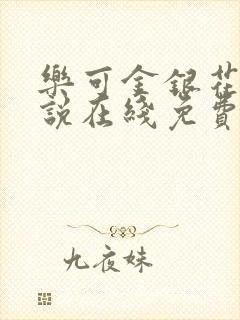 樂可金銀花
說在綫免費
九夜妹